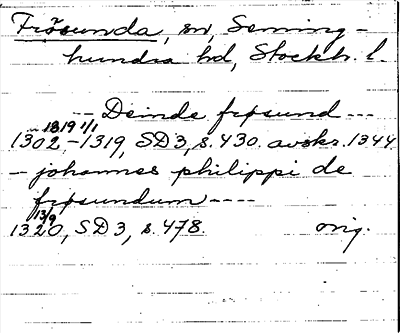 Frösunda, sn, Seming-
hundra hd, Stockh. l.
-- Deinde frøsund ---
1302 18/9 - 1319 1/1, SD 3, s. 430. avskr. 1344
- johannes philippi de
frøsundum ----
1320 13/9, SD 3, s. 478. orig.